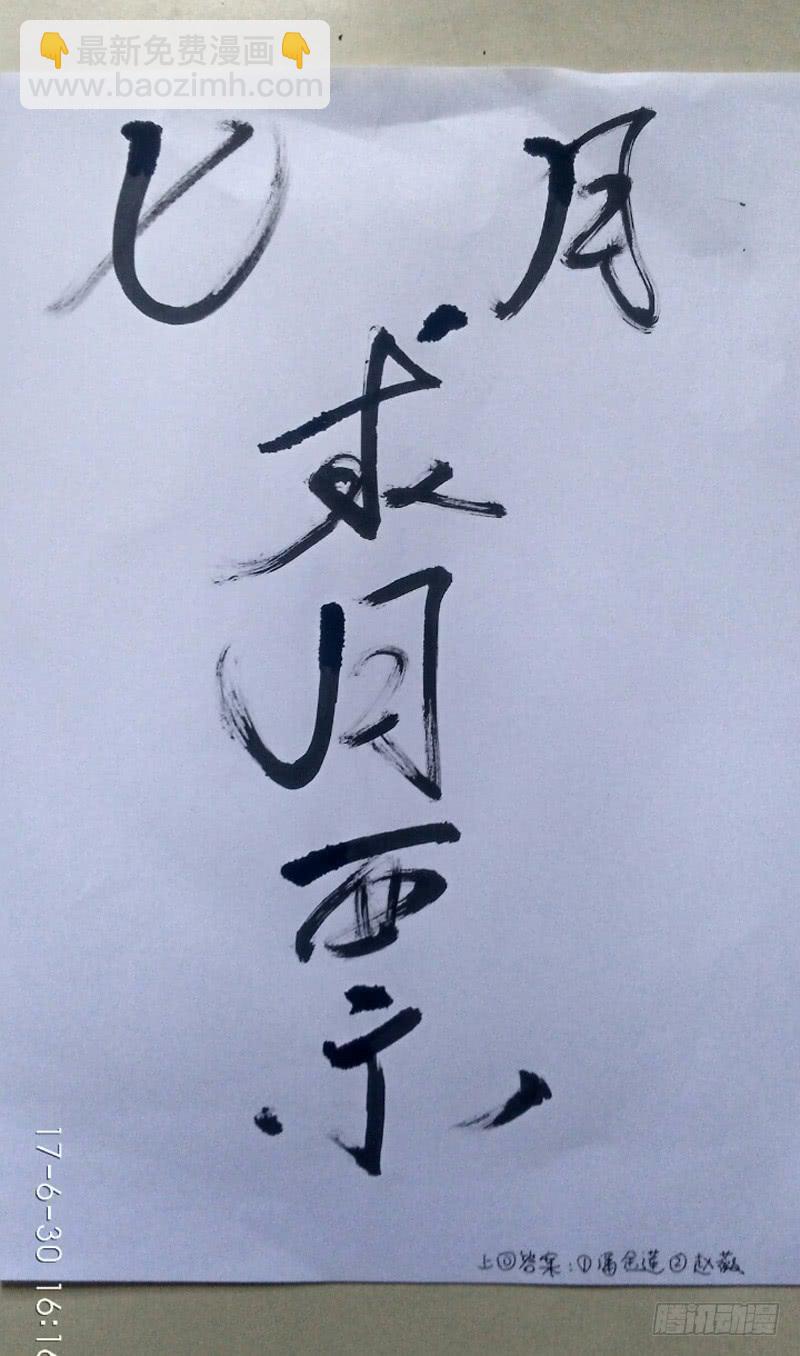 👇最新免费漫画👇
www.baozimh.com
七月
求
月
票
17-6-30 16:16
上回答案:①潘金莲②赵薇
腾讯动漫